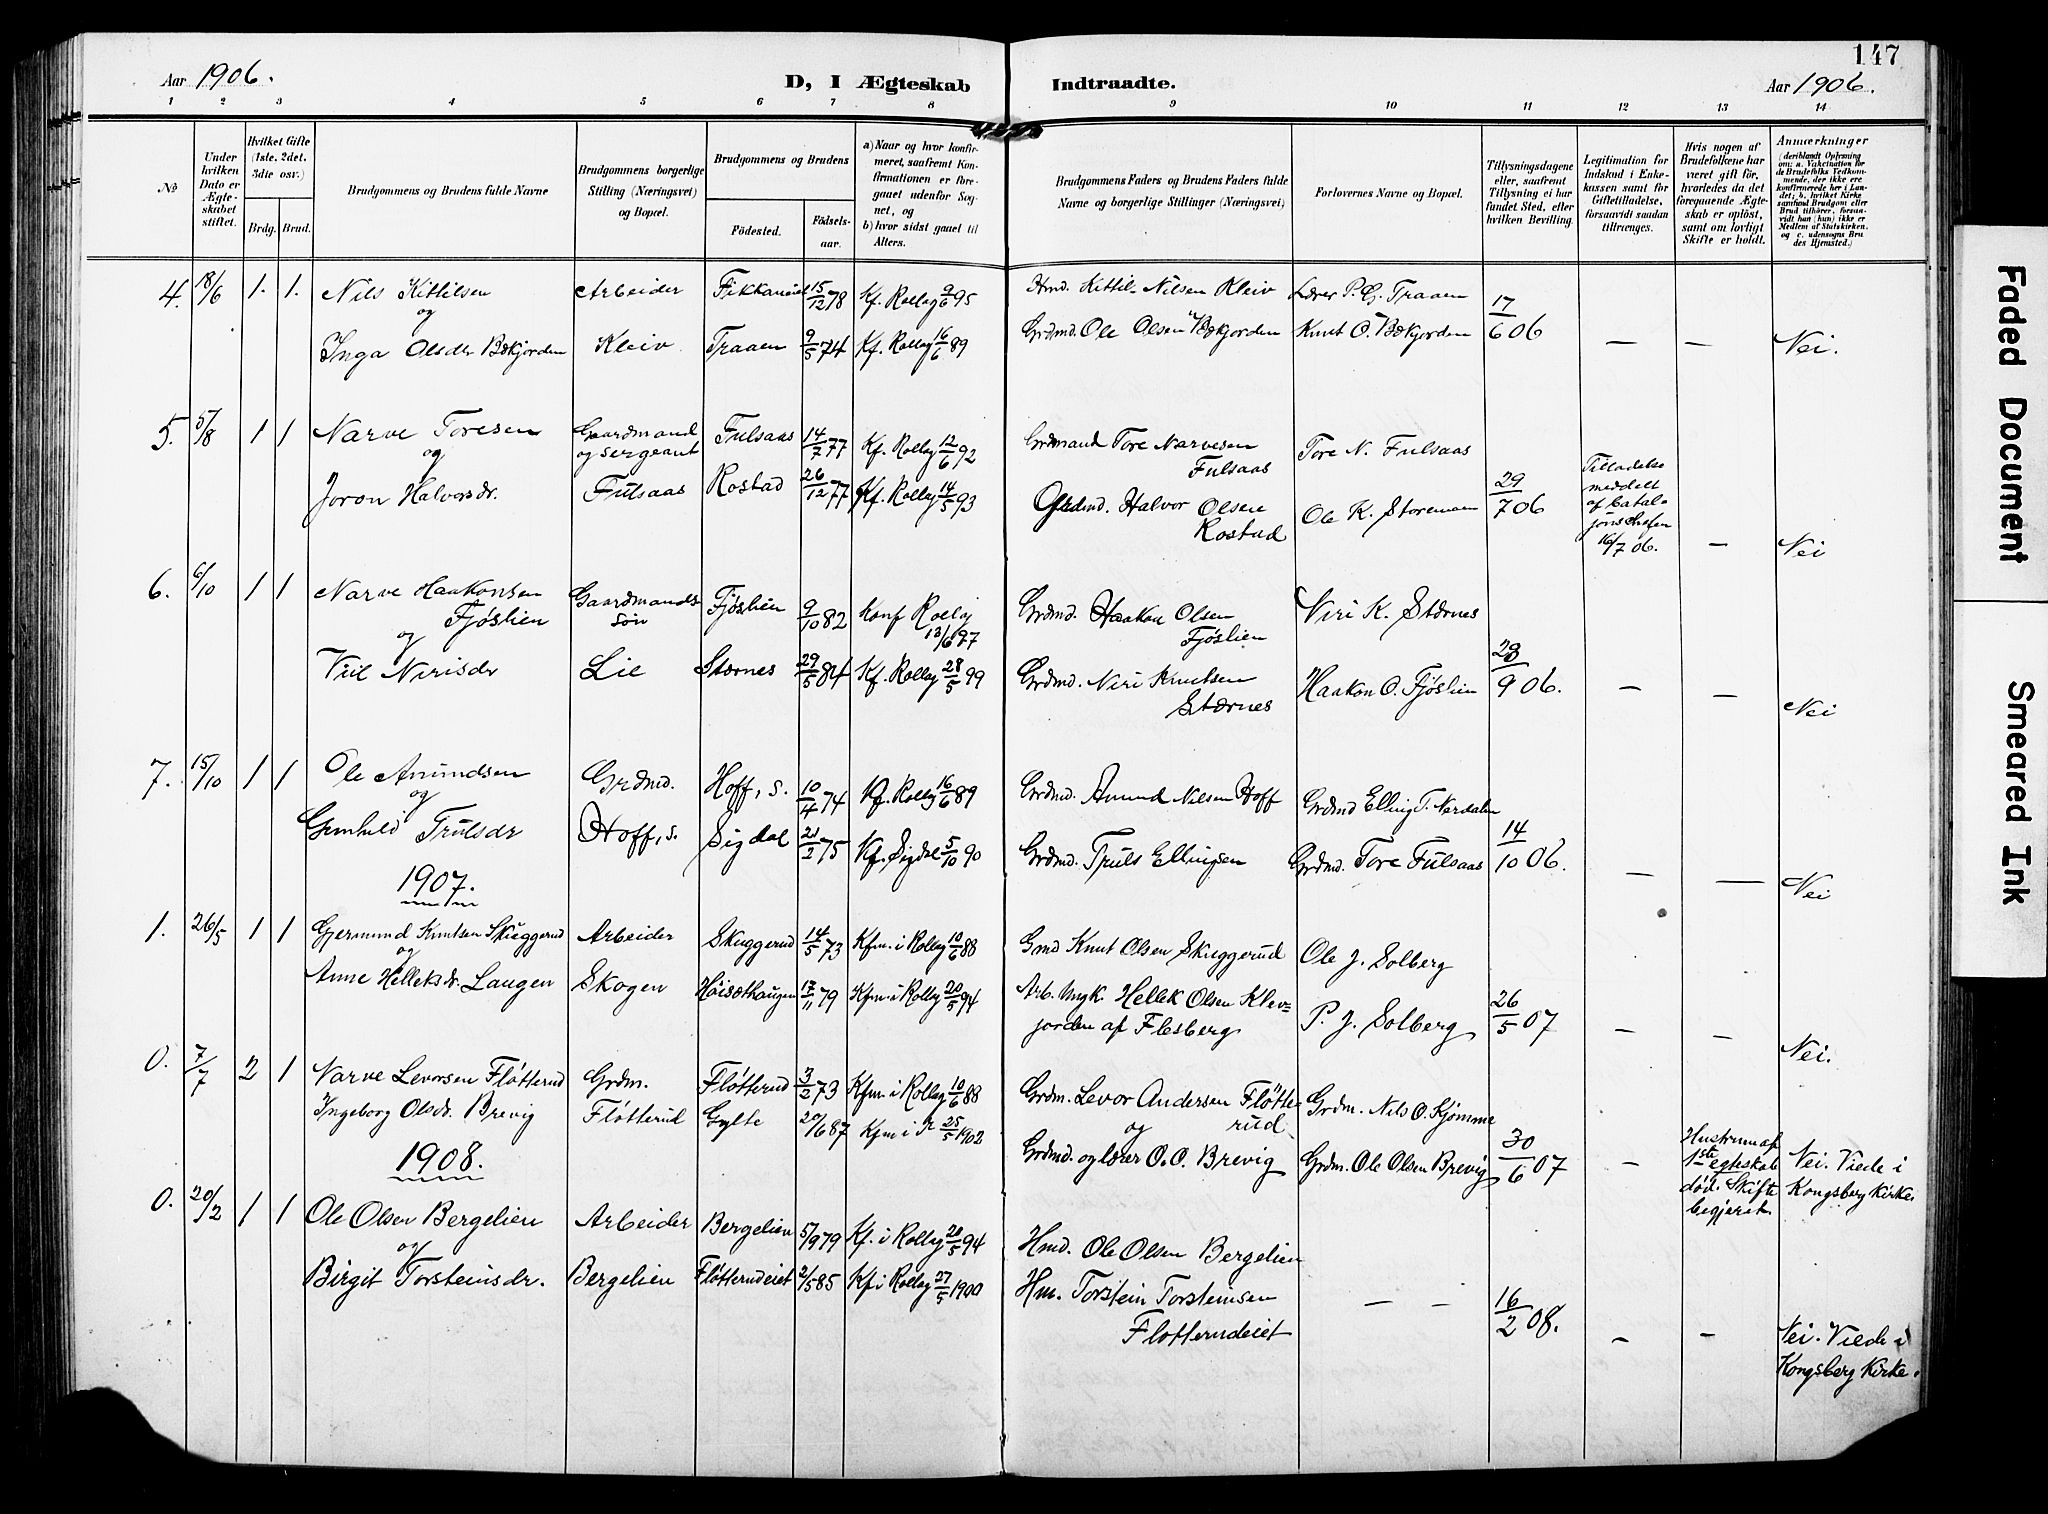 147
Aar 1906.
D, I Ægteskab
Indtraadte.
Aar 1906.
1 2 3 4 5 6 7 8 9 10 11 12 13 14
No
Under hvilken Dato er Ægteskabet stiftet.
Hvilket Gifte (1ste, 2det, 3die osv.)
Brdg. Brud.
Brudgommens og Brudens fulde Navne
Brudgommens borgerlige Stilling (Næringsvei) og Bopæl.
Brudgommens og Brudens
Födested.
Födselsaar.
a) Naar og hvor konfirmeret, saafremt Konfirmationen er foregaaet udenfor Sognet, og
b) hvor sidst gaaet til Alters.
Brudgommens Faders og Brudens Faders fulde Navne og borgerlige Stillinger (Næringsvei)
Forlovernes Navne og Bopæl.
Tillysningsdagene eller, saafremt Tillysning ei har fundet Sted, efter hvilken Bevilling.
Legitimation for Indskud i Enkekassen samt for Giftetilladelse, forsaavidt saadan tiltrænges.
Hvis nogen af Brudefolkene har været gift för, hvorledes da det foregaaende Ægteskab er oplöst, samt om lovligt Skifte er holdt.
Anmærkninger (deriblandt Oplysning om: a. Vakcination for de Brudefolks Vedkommende, der ikke ere konfirmerede her i Landet; b. hvilket Kirkesamfund Brudgom eller Brud tilhörer, forsaavidt han (hun) ikke er Medlem af Statskirken, og c. udensogns Brudes Hjemsted.)
4. 18/6 1. 1. Nils Kittilsen Arbeider 15/12 78 Kf. Rollag 9/6 95 Hmd. Kittil Nilsen Kleiv Lærer P. G. Traaen 17/6 06
og
Inga Olsdr Bækjorden Kleiv Traaen 9/5 74 Kf. Rollag 16/6 89 Grdmd. Ole Olsen Bækjorden Knut O. Bækjorden — — Nei.
5. 5/8 1 1 Narve Toresen Gaardmand og sergeant Fulsaas 14/7 77 Kf. Rollag 12/6 92 Grdmand Tore Narvesen Fulsaas Tore N. Fulsaas
og
Joron Halvorsdr. Fulsaas Rostad 26/12 77 Kf. Rollag 14/5 93 Grdmd. Halvor Olsen Rostad Ole K. Storemoen 29/7 06 Tilladelse meddelt af Bataljonschefen 16/7 06. — Nei
6. 6/10 1 1 Narve Haakonsen Fjøslien Gaardmandssøn Fjøslien 9/10 82 Konf Rollag 13/6 97 Grdmd. Haakon Olsen Fjøslien Niri K. Stærnes
og
Nirisdr Lie Stærnes 29/5 84 Kf. Rollag 28/5 99 Grdmd. Niri Knutsen Stærnes Haakon O. Fjøslien /9 06. — — Nei
7. 15/10 1 1 Ole Amundsen Grdmd. Hoff, s. 10/4 74 Kf. Rollag 16/6 89 Grdmd. Amund Nilsen Hoff Grdmd Elling T. Nerdalen
og
Gunhild Trulsdr Hoff, s. Sigdal 21/2 75 Kf. Sigdal 5/10 90 Grdmd. Truls Ellingsen Grdmd. Tore Fulsaas 14/10 06. — — Nei
1907.
1. 26/5 1 1 Gjermund Knutsen Skuggerud Arbeider Skuggerud 14/5 73 Kfm. i Rollag 10/6 88 Gmd Knut Olsen Skuggerud Ole J. Solberg
og
Anne Helleksdr. Laugen Skogen 17/11 79 Kfm. i Rollag 20/5 94 Arb. Ungk. Hellek Olsen Klevjorden af Flesberg P. J. Solberg 26/5 07 — — Nei.
0. 7/7 2 1 Narve Levorsen Fløtterud Grdm. Fløtterud 3/2 73 Kfm. i Rollag 10/6 88 Grdm. Levor Andersen Fløtterud Grdm. Nils O. Kjømme
og
Ingeborg Olsdr. Brevig Fløtterud Gylte 20/6 87 Kfm i R 25/5 1902 Grdmd. og lærer O. O. Brevig Grdm. Ole Olsen Brevig 30/6 07 — Hustrun af 1ste egteskab død. Skifte begjæret. Nei. Viede i Kongsberg Kirke.
1908.
0. 20/2 1 1 Ole Olsen Bergelien Arbeider Bergelien 5/9 79 Kf. i Rollag 20/5 94 Hmd. Ole Olsen Bergelien
og
Birgit Torsteinsdr. Bergelien Fløtterudeiet 2/5 85 Kf i Rollag 27/5 1900 Hm. Torstein Torsteinsen Fløtterudeiet — — 16/2 08. — — Nei. Viede i Kongsberg Kirke.
Faded Document
Smeared Ink